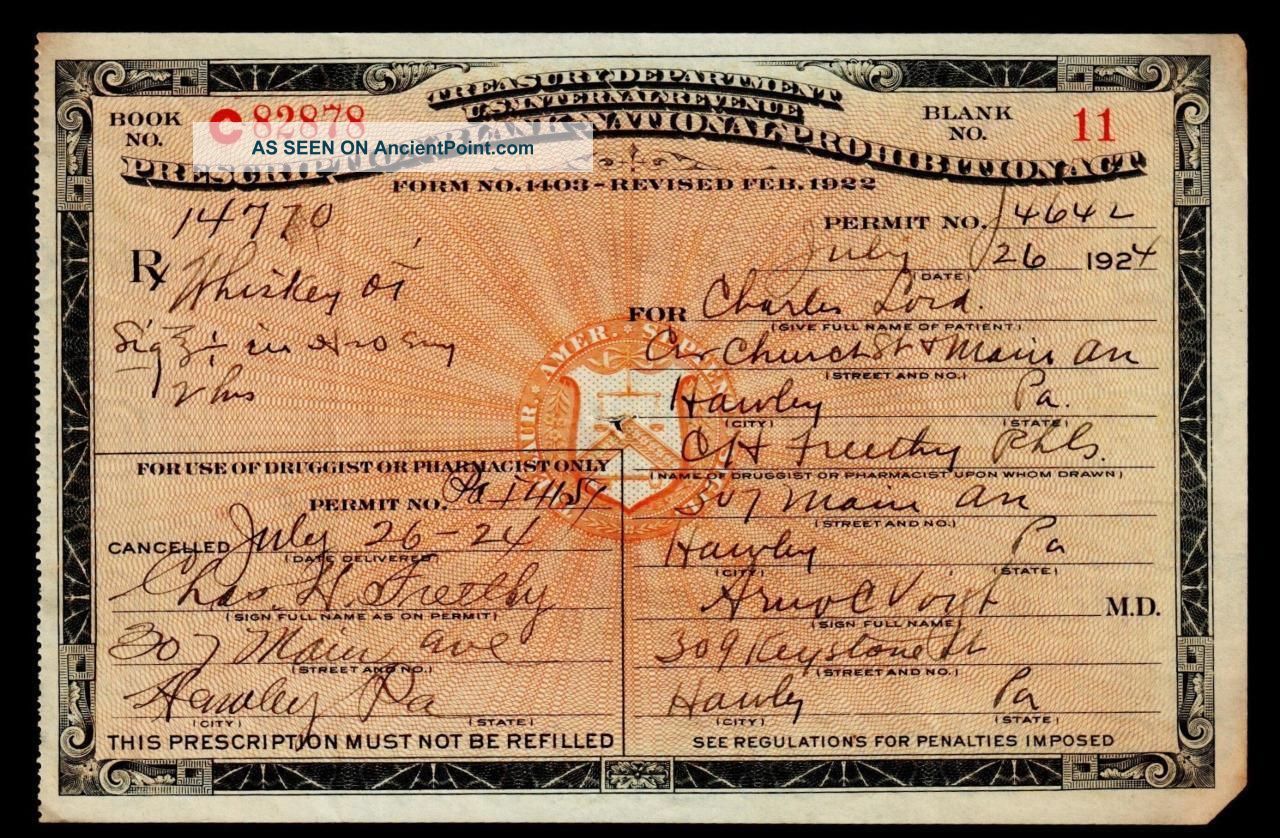 TREASURY DEPARTMENT
U.S. INTERNAL REVENUE
BOOK NO. C 82878
BLANK NO. 11
AS SEEN ON AncientPoint.com
PRESCRIPTION BLANK NATIONAL PROHIBITION ACT
FORM NO. 1403 - REVISED FEB. 1922
14770
PERMIT NO. J 4642
July 26 1924
(DATE)
Rx Whiskey
FOR Charles Lord.
(GIVE FULL NAME OF PATIENT)
Sig in
Church St + Main
(STREET AND NO.)
2 hrs
Hawley Pa.
(CITY) (STATE)
AMER.
C H Freethy
(NAME OF DRUGGIST OR PHARMACIST UPON WHOM DRAWN)
307 Main
(STREET AND NO.)
Hawley Pa
(CITY) (STATE)
Arno C Voigt M.D.
(SIGN FULL NAME)
309 Keystone St
(STREET AND NO.)
Hawley Pa
(CITY) (STATE)
SEE REGULATIONS FOR PENALTIES IMPOSED
FOR USE OF DRUGGIST OR PHARMACIST ONLY
PERMIT NO. Pa
CANCELLED July 26-24
(DATE DELIVERED)
Chas. H. Freethy
(SIGN FULL NAME AS ON PERMIT)
307 Main ave
(STREET AND NO.)
Hawley Pa
(CITY) (STATE)
THIS PRESCRIPTION MUST NOT BE REFILLED